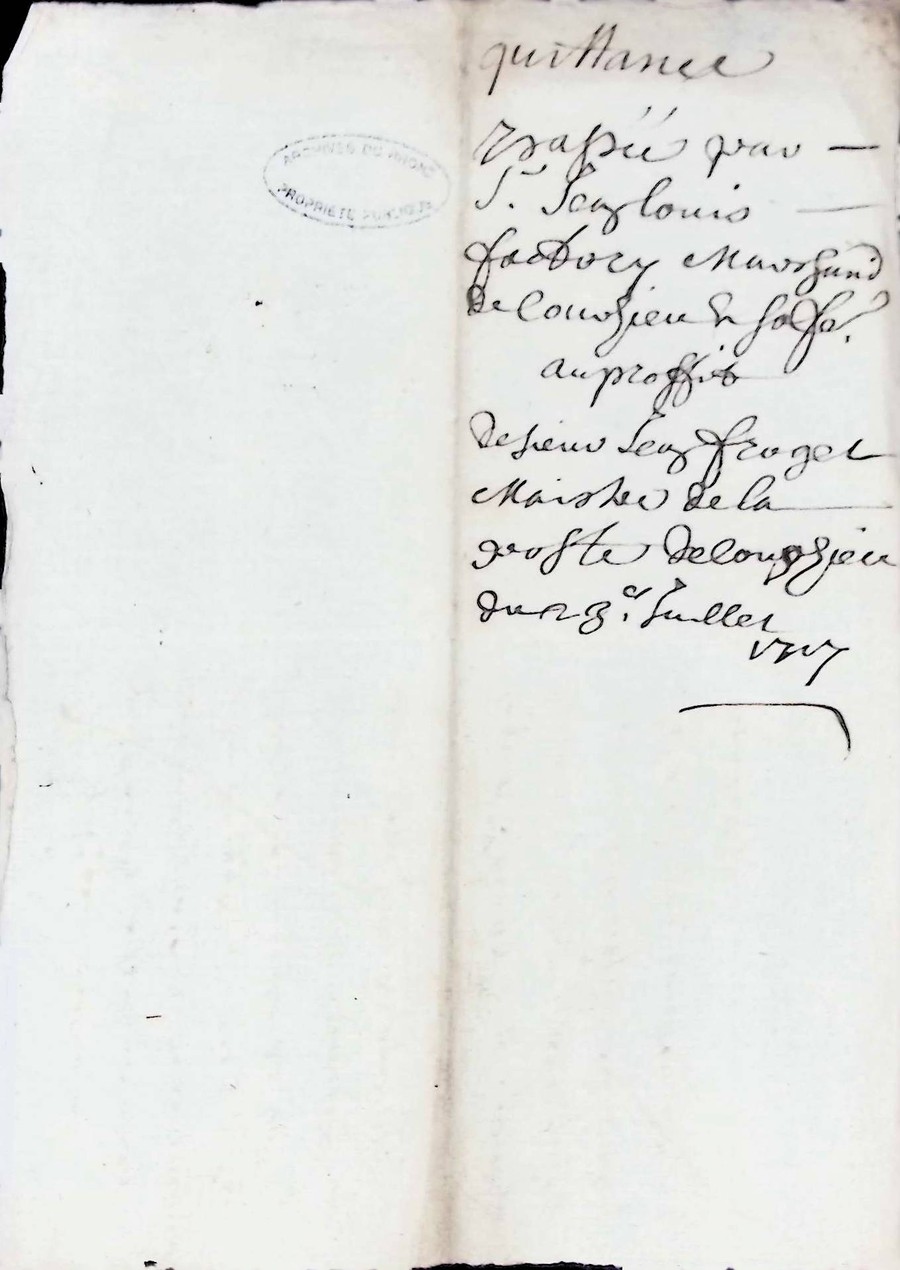 ARCHIVES DU RHONE
PROPRIÉTÉ PUBLIQUE
quittance
passée par
Sr. Jean louis
factory Marchand
de Courzieu &
au proffit
de sieur Jean froget
Maistre de la
poste de Courzieu
du 23e. Juillet
1717